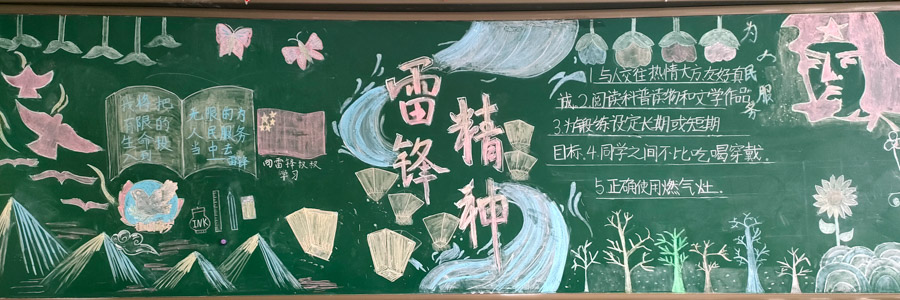 雷锋
精神
我将把
有限的
生命投
入到
无限的为
人民服务
当中去
雷锋
向雷锋叔叔
学习
INK
为
民
服
务
1.与人交往热情大方友好真
诚.2.阅读科普读物和文学作品.
3.锻炼设定长期或短期
目标.4.同学之间不比吃喝穿戴.
5.正确使用燃气灶.